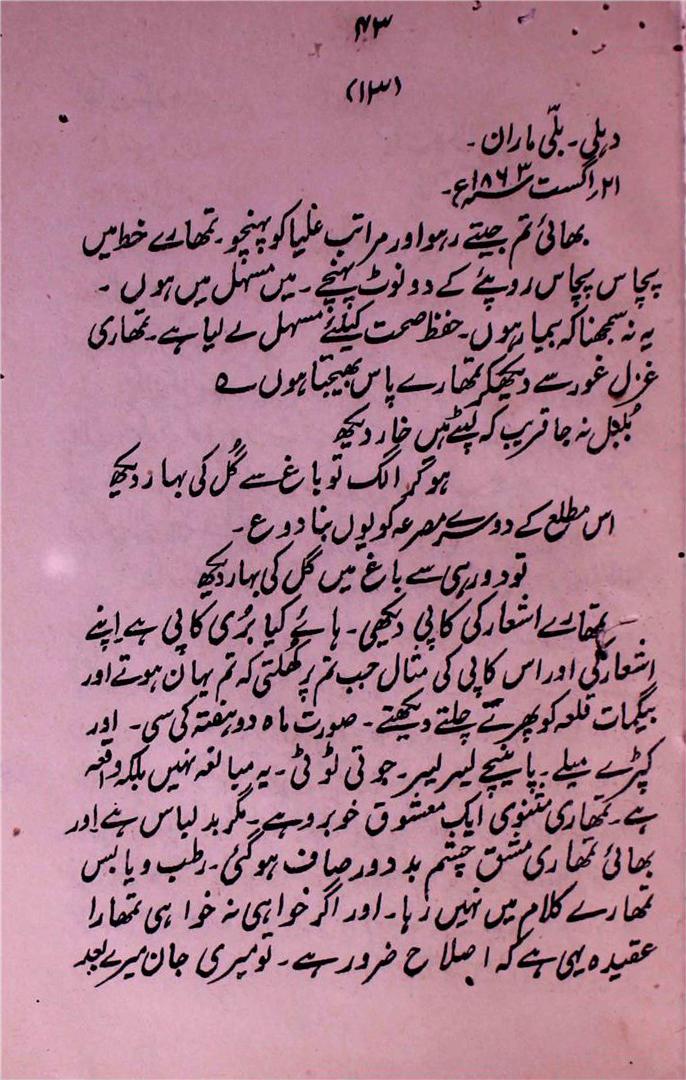 ۴۳
(۱۳)
دہلی۔ بلّی ماران۔
۲۱؍اگست ۱۸۶۳؁ء۔
بھائی تم جیتے رہو اور مراتب علیا کو پہنچو۔ تمھارے خط میں
پچاس پچاس روپئے کے دو نوٹ پہنچے۔ میں مسہل میں ہوں۔
یہ نہ سمجھنا کہ بیمار ہوں۔ حفظ صحت کیلئے مسہل لے لیا ہے۔ تمھاری
غزل غور سے دیکھکر تمھارے پاس بھیجتا ہوں ؎
بُلبُل نہ جا قریب کہ لپٹے ہیں خار دیکھ
ہو گر الگ تو باغ سے گُل کی بہار دیکھ
اس مطلع کے دوسرے مصرعہ کو یوں بنا دو ع۔
تو دور ہی سے باغ میں گل کی بہار دیکھ
تمھارے اشعار کی کاپی دیکھی۔ ہائے کیا بُری کاپی ہے اپنے
اشعار کی اور اس کاپی کی مثال جب تم پر کھلتی کہ تم یہان ہوتے اور
بیگمات قلعہ کو پھرتے چلتے دیکھتے۔ صورت ماہ دو ہفتہ کی سی۔ اور
کپڑے میلے۔ پائنچے لیر لیر۔ جوتی ٹوٹی۔ یہ مبالغہ نہیں بلکہ واقعہ
ہے۔ تمھاری مثنوی ایک معشوق خوبرو ہے۔ مگر بد لباس ہے اور
بھائی تمھاری مشق چشم بد دور صاف ہو گئی۔ رطب و یابس
تمھارے کلام میں نہیں رہا۔ اور اگر خواہی نہ خواہی تمھارا
عقیدہ یہی ہے کہ اصلاح ضرور ہے۔ تو میری جان میرے بعد